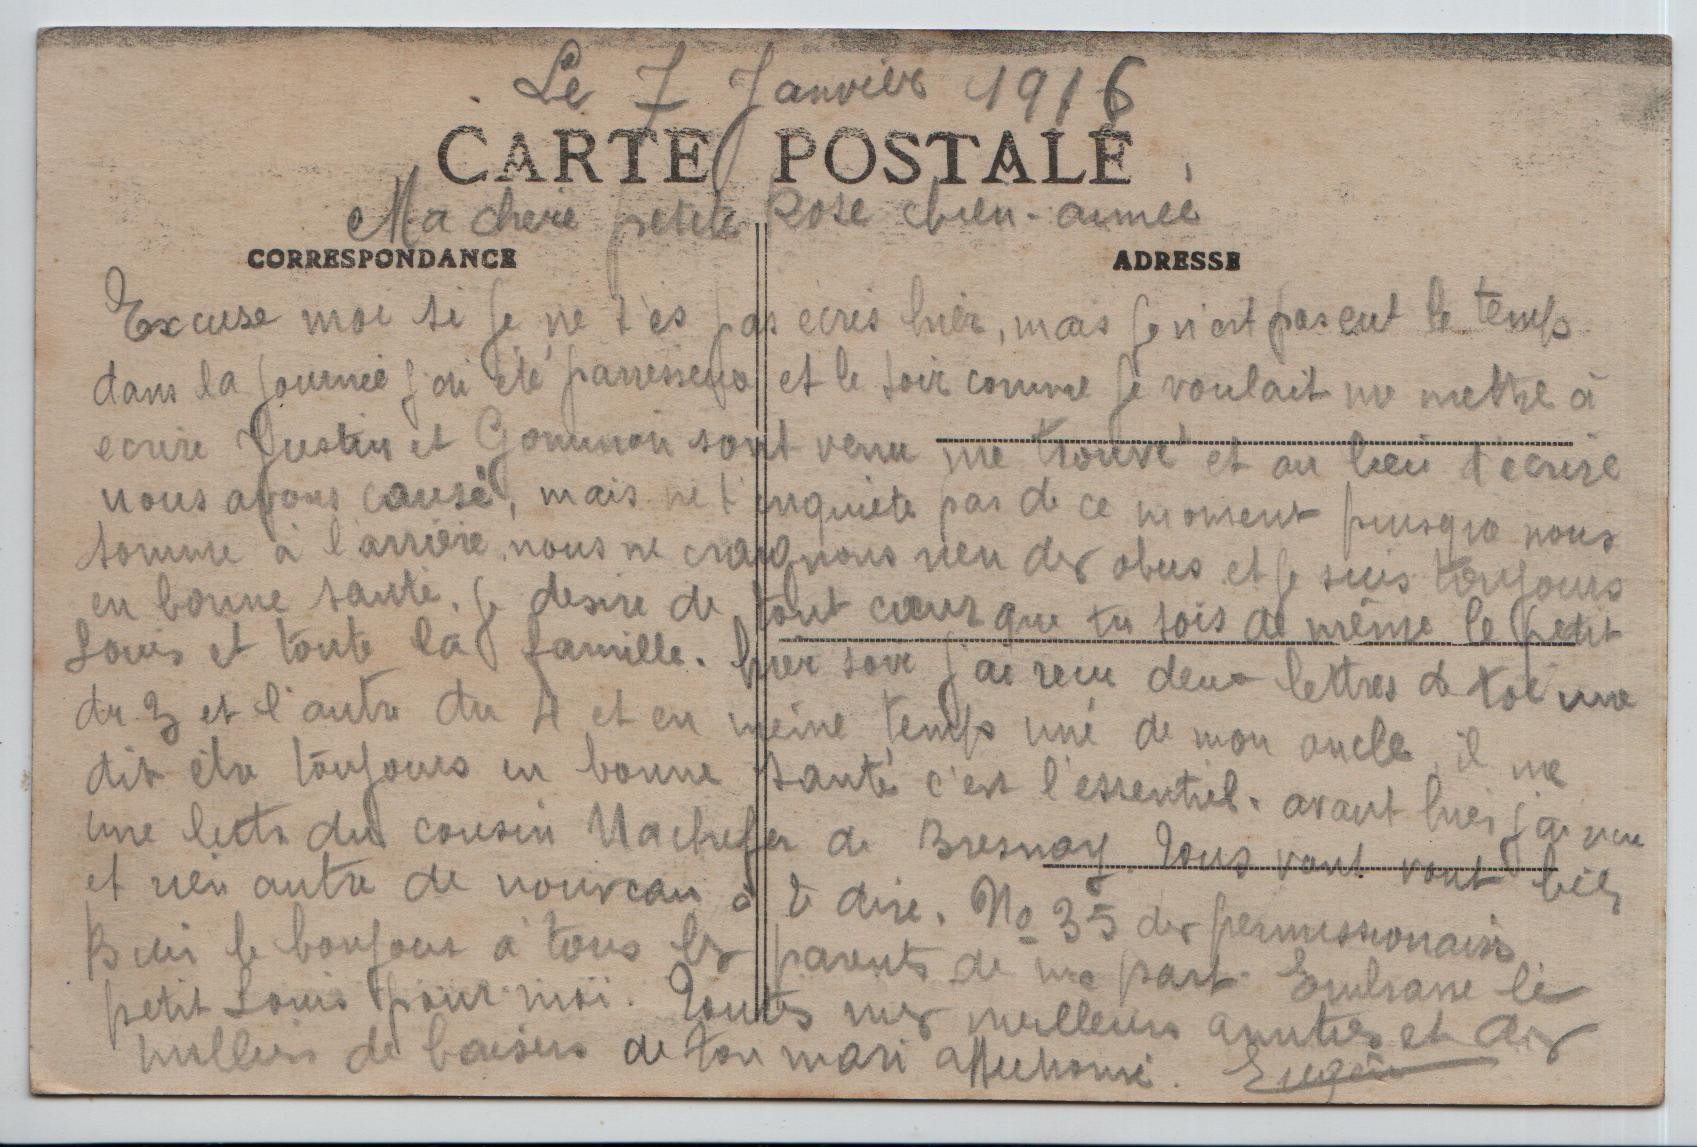 Le 7 Janvier 1916
CARTE POSTALE
Ma chère petite Rose bien-aimée
CORRESPONDANCE
ADRESSE
Excuse moi si je ne t'es pas ecris hier, mais je n'est pas eut le temps
dans la journée j'ai été parresseux et le soir comme je voulait me mettre à
ecrire Justin et Gommon sont venu me trouvé et au lieu d'écrire
nous avons causé, mais ne t'inquiete pas de ce moment puisque nous
somme à l'arrière, nous ne craignons rien des obus et je suis toujours
en bonne santé. Je desire de tout cœur que tu sois de même le petit
Louis et toute la famille. hier soir j'ai recu deux lettres de toi une
du 3 et l'autre du 4 et en même temps une de mon oncle, il me
dit être toujours en bonne santé c'est l'essentiel. avant hier j'ai recu
une lettre du cousin de Bresnay. Tous vont vont bien
et rien autre de nouveau à te dire. No 35 des permissionaires
Bien le bonjour à tous les parents de ma part. Embrasse le
petit Louis pour moi. Toutes mes meilleurs amities et des
milliers de baisers de ton mari affectionné. Eugène